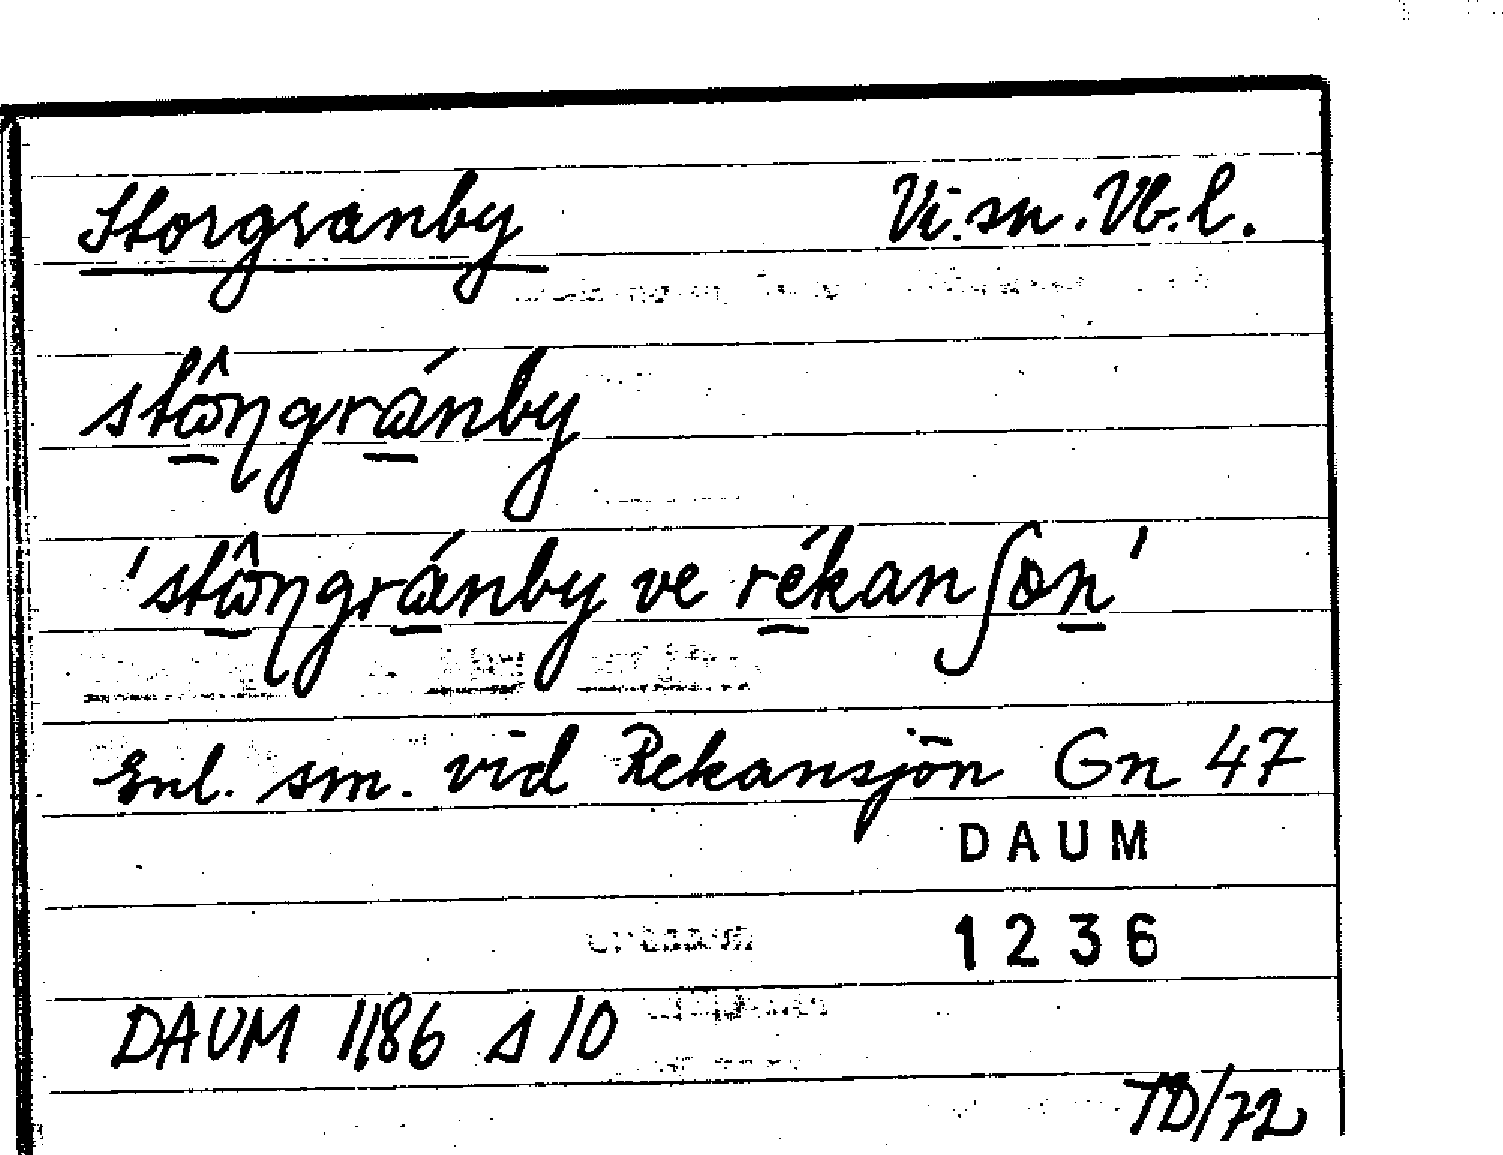 Storgranby Vi. sn. Vb. l.
stω̂ŋgránby
'stω̂ŋgránby ve rékanʃön'
Enl. sm. vid Rekansjön Gn 47
DAUM
1236
DAUM 1186 s 10
TD/72